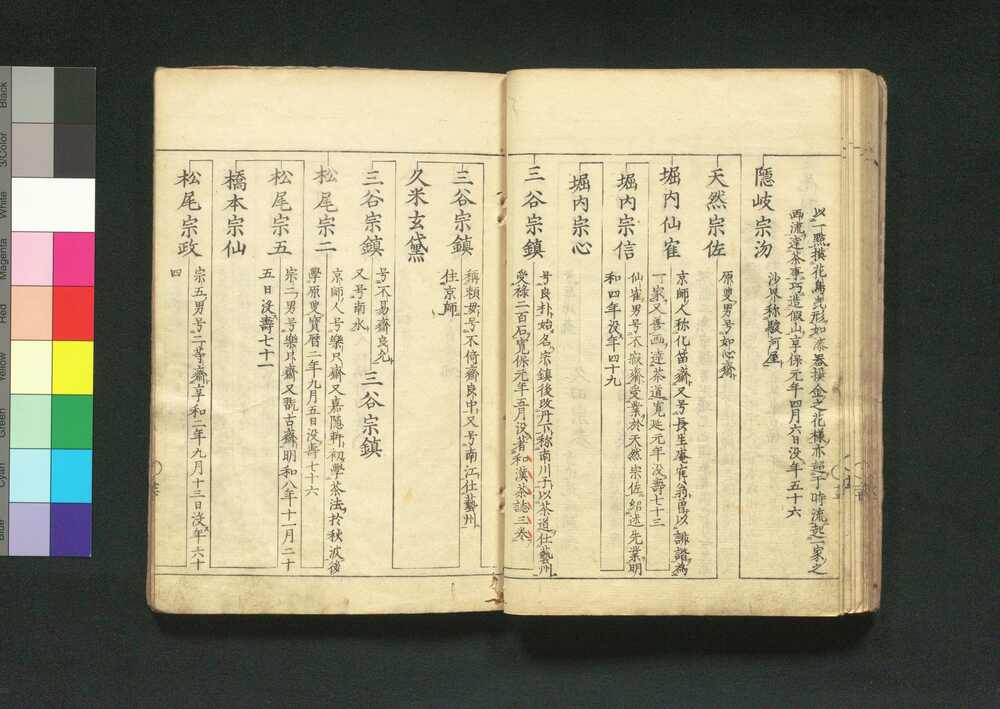 以一點撲花鳥其形如漆器撲金之花樣亦超于時流起一家之
西流達茶事巧造假山享保元年四月六日没年五十六
隠岐宗沕
沙界称駿河屋
天然宗佐
原叟男号如心齋
堀内仙隺
京師人称化笛齋又号長生庵隺翁曽以誹諧為
一家又善画達茶道寛延元年没壽七十三
堀内宗信
仙隺男号不寂齋受業於天然宗佐紹述先業明
和四年没年四十九
堀内宗心
三谷宗鎮
号良朴始名宗鎮後改丹下称南川子以茶道仕藝州
受禄二百石寛保元年五月没著和漢茶誌三巻
三谷宗鎮
稱頼母号不倚齋良中又号南江仕藝州
住京師
久米玄黛
三谷宗鎮
号不易齋良允
又号南水
三谷宗鎮
松尾宗二
京師人号樂只齋又嘉隠軒初學茶法於秋波後
學原叟寳暦二年九月五日没壽七十六
松尾宗五
宗二男号樂只齋又翫古齋明和八年十一月二十
五日没壽七十一
橋本宗仙
松尾宗政
宗五男号二等齋享和二年九月十三日没年六十
四
Black
3/Color
White
Magenta
Red
Yellow
Green
Cyan
Blue